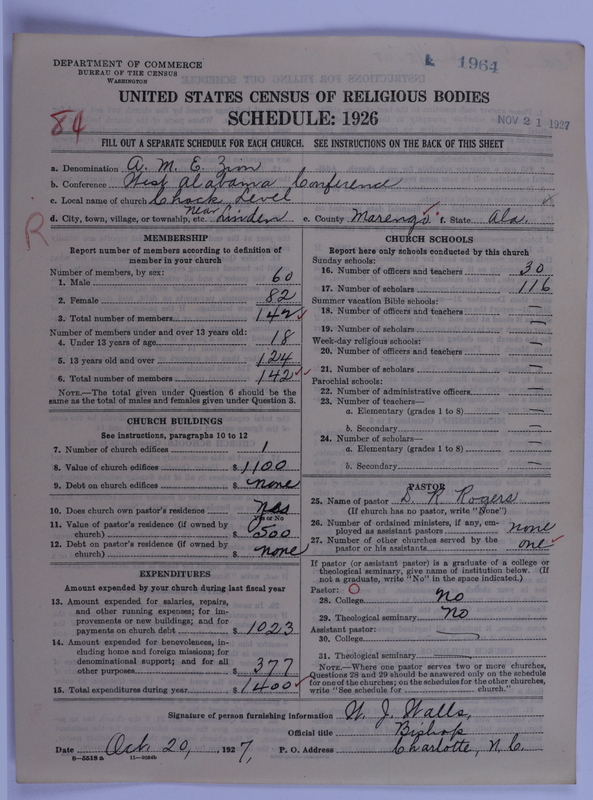 1964
DEPARTMENT OF COMMERCE
BUREAU OF THE CENSUS
WASHINGTON
UNITED STATES CENSUS OF RELIGIOUS BODIES
SCHEDULE: 1926
NOV 21 1927
84
FILL OUT A SEPARATE SCHEDULE FOR EACH CHURCH. SEE INSTRUCTIONS ON THE BACK OF THIS SHEET
a. Denomination A. M. E. Zion
b. Conference West Alabama Conference
c. Local name of church Chock Level
d. City, town, village, or township, etc. Near Linden e. County Marengo f. State Ala.
R
MEMBERSHIP
Report number of members according to definition of
member in your church
Number of members, by sex:
1. Male 60
2. Female 82
3. Total number of members 142
Number of members under and over 13 years old:
4. Under 13 years of age 18
5. 13 years old and over 124
6. Total number of members 142
NOTE.—The total given under Question 6 should be the
same as the total of males and females given under Question 3.
CHURCH BUILDINGS
See instructions, paragraphs 10 to 12
7. Number of church edifices 1
8. Value of church edifices $ 1100
9. Debt on church edifices $ none
10. Does church own pastor's residence
Yes or No
11. Value of pastor's residence (if owned by
church) $ 500
12. Debt on pastor's residence (if owned by
church) $ none
EXPENDITURES
Amount expended by your church during last fiscal year
13. Amount expended for salaries, repairs,
and other running expenses; for im-
provements or new buildings; and for
payments on church debt $ 1023
14. Amount expended for benevolences, in-
cluding home and foreign missions; for
denominational support; and for all
other purposes $ 377
15. Total expenditures during year $ 1400
CHURCH SCHOOLS
Report here only schools conducted by this church
Sunday schools:
16. Number of officers and teachers 30
17. Number of scholars 116
Summer vacation Bible schools:
18. Number of officers and teachers —
19. Number of scholars —
Week-day religious schools:
20. Number of officers and teachers —
21. Number of scholars —
Parochial schools:
22. Number of administrative officers —
23. Number of teachers—
a. Elementary (grades 1 to 8) —
b. Secondary —
24. Number of scholars—
a. Elementary (grades 1 to 8) —
b. Secondary —
PASTOR
25. Name of pastor D. R. Rogers
(If church has no pastor, write "None")
26. Number of ordained ministers, if any, em-
ployed as assistant pastors none
27. Number of other churches served by the
pastor or his assistants one
If pastor (or assistant pastor) is a graduate of a college or
theological seminary, give name of institution below. (If
not a graduate, write "No" in the space indicated.)
Pastor:
28. College No
29. Theological seminary No
Assistant pastor:
30. College —
31. Theological seminary —
NOTE.—Where one pastor serves two or more churches,
Questions 28 and 29 should be answered only on the schedule
for one of the churches; on the schedules for the other churches,
write "See schedule for church."
Signature of person furnishing information W. J. Walls,
Official title Bishop
Date Oct. 20, 1927, P. O. Address Charlotte, N. C.
8-5518 a 11-9364b